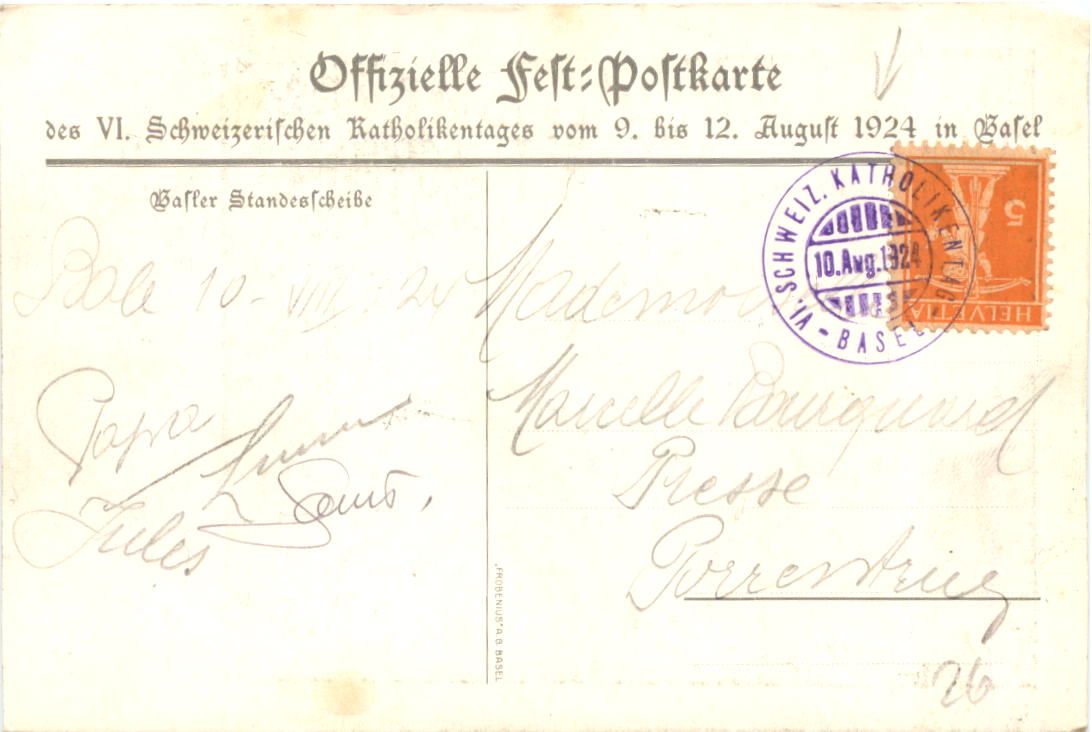 Offizielle Fest-Postkarte
des VI. Schweizerischen Katholikentages vom 9. bis 12. August 1924 in Basel
Basler Standesscheibe
VI. SCHWEIZ. KATHOLIKENTAG.
10.Aug.1924
- BASEL
5
HELVETIA
Bale 10-VIII. 24
Papa
Jules
Mademoi
Marcelle Bourquard
Presse
Porrentruy
"FROBENIUS" A.G. BASEL
26